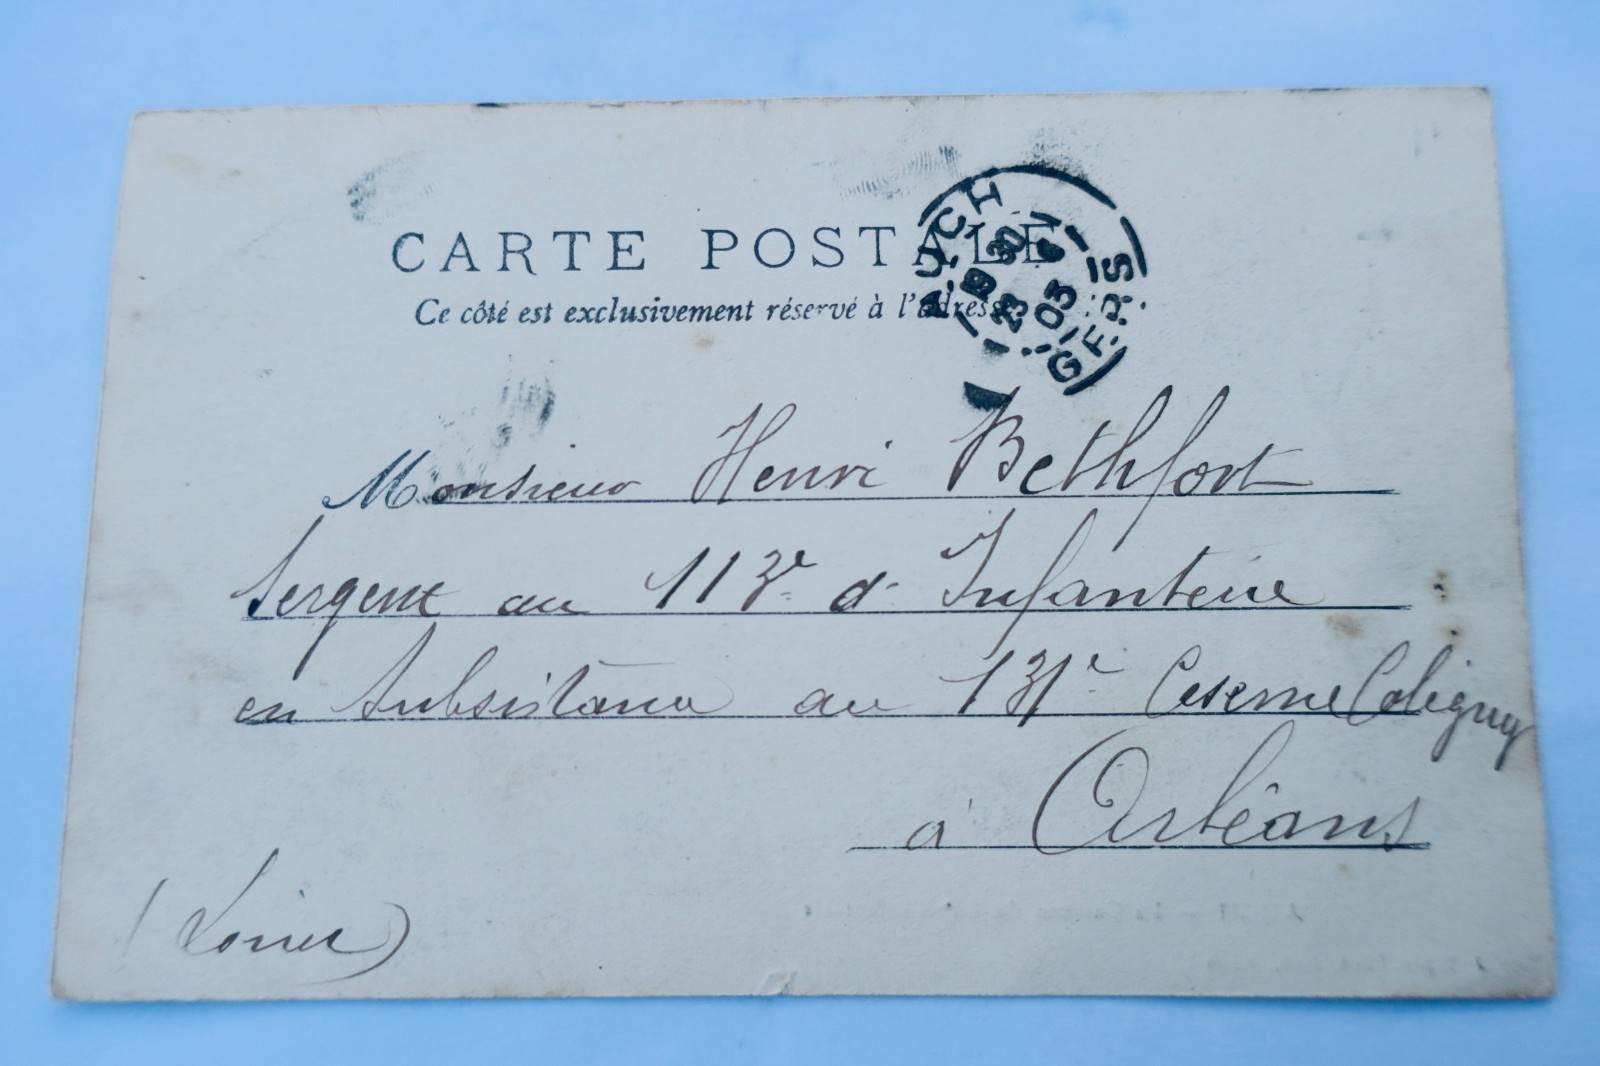 CARTE POSTALE
Ce côté est exclusivement réservé à l'adresse
AUCH
30
23
03
GERS
Monsieur Henri Bethfort
Sergent au 113e d' Infanterie
en subsistance au 131e Caserne Coligny
à Orléans
(Loiret)